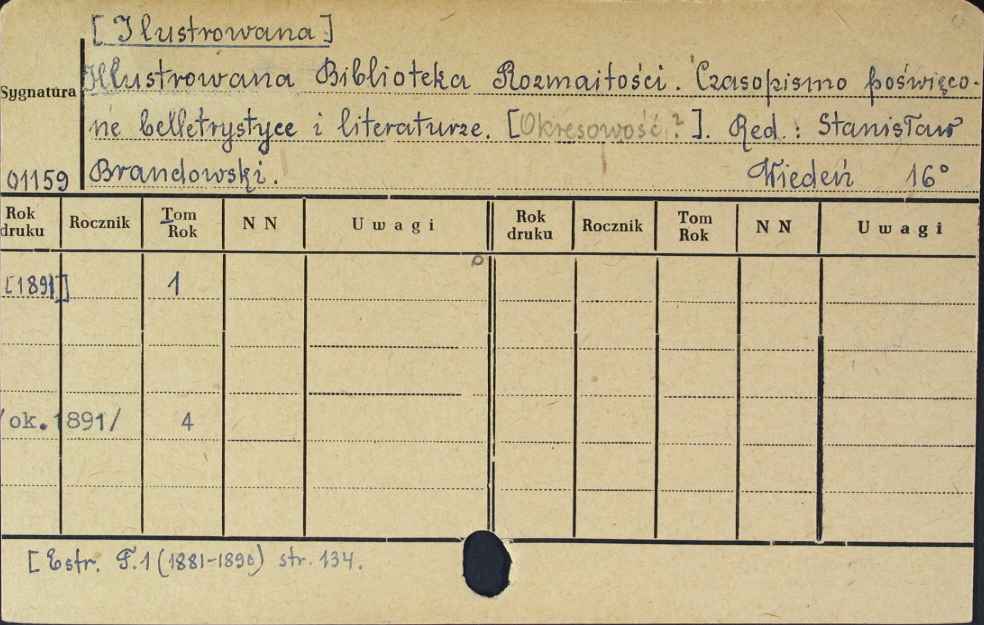 [Ilustrowana]
Illustrowana Biblioteka Rozmaitości. Czasopismo poświęco-
Sygnatura
ne belletrystyce i literaturze. [Okresowość?]. Red.: Stanisław
01159 Brandowski. Wiedeń 16°
Rok druku Rocznik Tom Rok NN Uwagi Rok druku Rocznik Tom Rok NN Uwagi
[1891] 1
/ok.1891/ 4
[Estr. T.1 (1881-1890) str. 134.